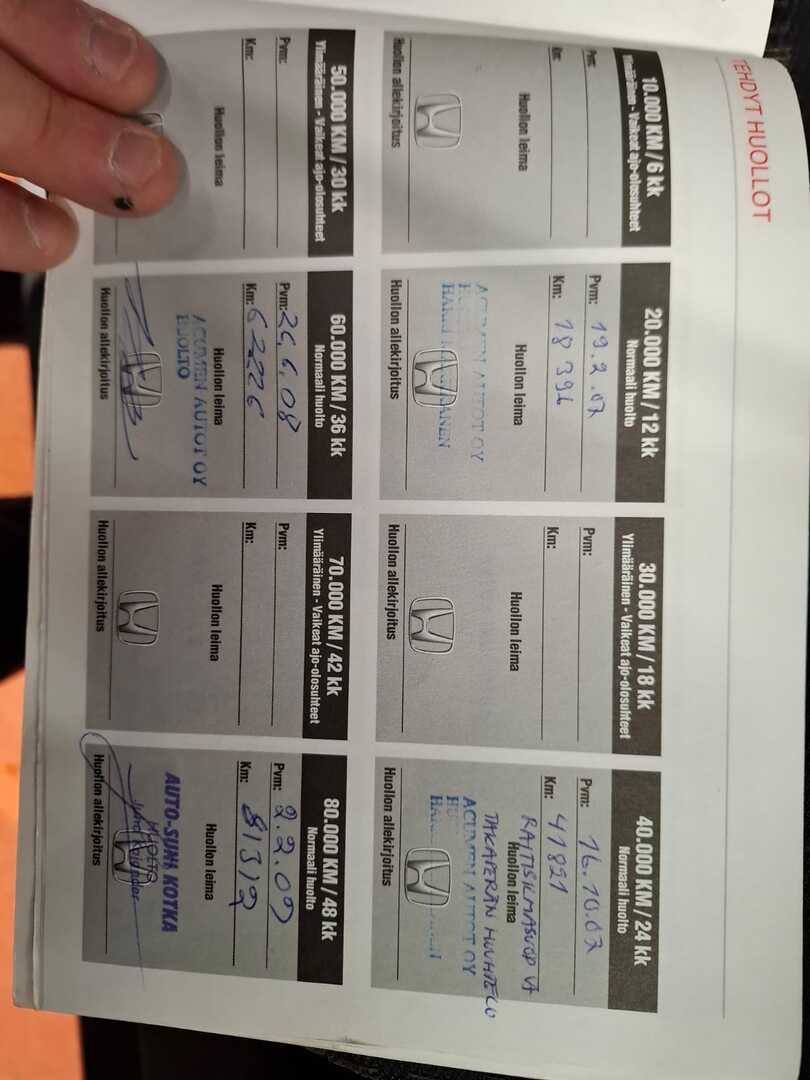 TEHDYT HUOLLOT
10.000 KM / 6 kk
Ylimääräinen - Vaikeat ajo-olosuhteet
Pvm:
Km:
Huollon leima
Huollon allekirjoitus
20.000 KM / 12 kk
Normaali huolto
Pvm: 19.2.07
Km: 18 396
Huollon leima
ACUMEN AUTOT OY
Huollon allekirjoitus
30.000 KM / 18 kk
Ylimääräinen - Vaikeat ajo-olosuhteet
Pvm:
Km:
Huollon leima
Huollon allekirjoitus
40.000 KM / 24 kk
Normaali huolto
Pvm: 16.10.07
Km: 41821
RAITISILMASUOD VA
Huollon leima
TAKAPERÄN HUUHTELU
ACUMEN AUTOT OY
Huollon allekirjoitus
50.000 KM / 30 kk
Ylimääräinen - Vaikeat ajo-olosuhteet
Pvm:
Km:
Huollon leima
Huollon allekirjoitus
60.000 KM / 36 kk
Normaali huolto
Pvm: 26.6.08
Km: 62226
Huollon leima
ACUMEN AUTOT OY
HUOLTO
Huollon allekirjoitus
70.000 KM / 42 kk
Ylimääräinen - Vaikeat ajo-olosuhteet
Pvm:
Km:
Huollon leima
Huollon allekirjoitus
80.000 KM / 48 kk
Normaali huolto
Pvm: 2.2.09
Km: 81312
Huollon leima
AUTO-SUNI KOTKA
Huollon allekirjoitus